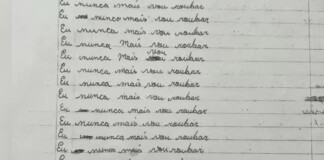 Eu nunca mais vou roubar
Eu nunca mais vou roubar
Eu nunca mais vou roubar
Eu nunca Mais vou roubar
Eu nunca Mais vou roubar
Eu nunca mais vou roubar
Eu nunca mais vou roubar
Eu nunca mais vou roubar
Eu nunca mais vou roubar
Eu nunca mais vou roubar
Eu nunca mais vou roubar
Eu nunca mais vou roubar